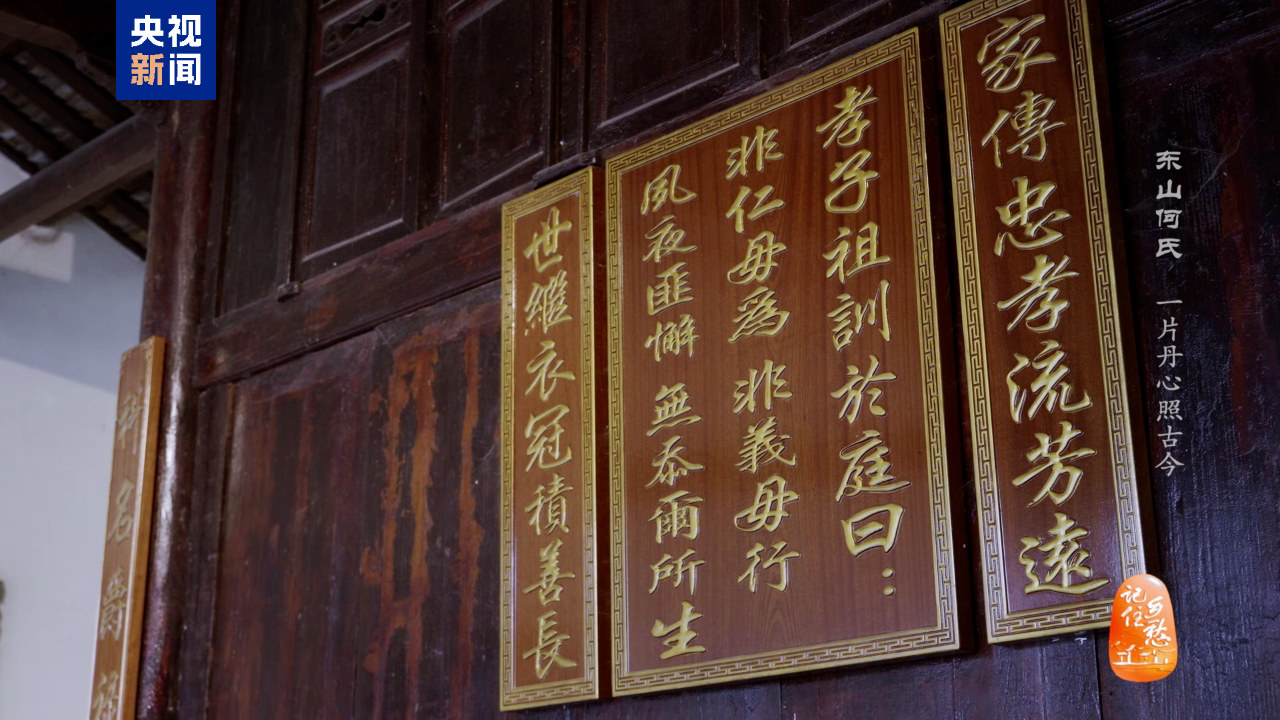 央视
新闻
家傳忠孝流芳遠
孝子祖訓於庭曰：
非仁毋為 非義毋行
夙夜匪懈 無忝爾所生
世繼衣冠積善長
科名爵祿
东山何氏 一片丹心照古今
记住乡愁